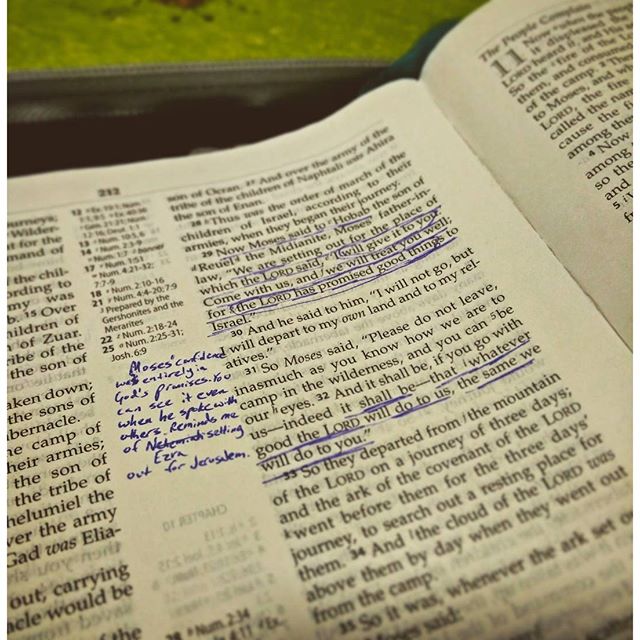 212
ourneys;
Wilder-
t for the
mand of
the chil-
ording to
my was
b. 15 Over
ildren of
of Zuar.
ribe of the
he son of
aken down;
the sons of
bernacle.
he camp of
heir armies;
the son of
the tribe of
helumiel the
ver the army
Gad was Elia-
out, carrying
acle would be
17 Num. 4:21-32;
7:7-9
18 Num. 2:10-16
21 Num. 4:4-20; 7:9
Prepared by the
Gershonites and the
Merarites
22 Num. 2:18-24
25 Num. 2:25-31;
Josh. 6:9
Moses' confidence
was entirely in
God's promises. You
can see it even
when he spoke with
others. Reminds me
of Nehemiah setting
Ezra
out for Jerusalem.
CHAPTER 10
28 Num. 2:34
son of Ocran. 27 And over the army of the
tribe of the children of Naphtali was Ahira
the son of Enan.
28 Thus was the order of march of the
children of Israel, according to their
armies, when they began their journey.
29 Now Moses said to Hobab the son of
Reuel the Midianite, Moses' father-in-
law, "We are setting out for the place of
which the LORD said, 'I will give it to you.'
Come with us, and we will treat you well;
for the LORD has promised good things to
Israel."
30 And he said to him, "I will not go, but
I will depart to my own land and to my rel-
atives."
31 So Moses said, "Please do not leave,
inasmuch as you know how we are to
camp in the wilderness, and you can be
our eyes. 32 And it shall be, if you go with
us—indeed it shall be—that whatever
good the LORD will do to us, the same we
will do to you."
33 So they departed from the mountain
of the LORD on a journey of three days;
and the ark of the covenant of the LORD
went before them for the three days'
journey, to search out a resting place for
them. 34 And the cloud of the LORD was
above them by day when they went out
from the camp.
35 So it was, whenever the ark set o
Moses said:
The People Complain
11 Now when the
it displeased the
LORD heard it, and His
So the fire of the
them, and consumed
of the camp.
to Moses, and
LORD, the fire
called the name
cause the fi
among the
4 Now
among
so the
and s